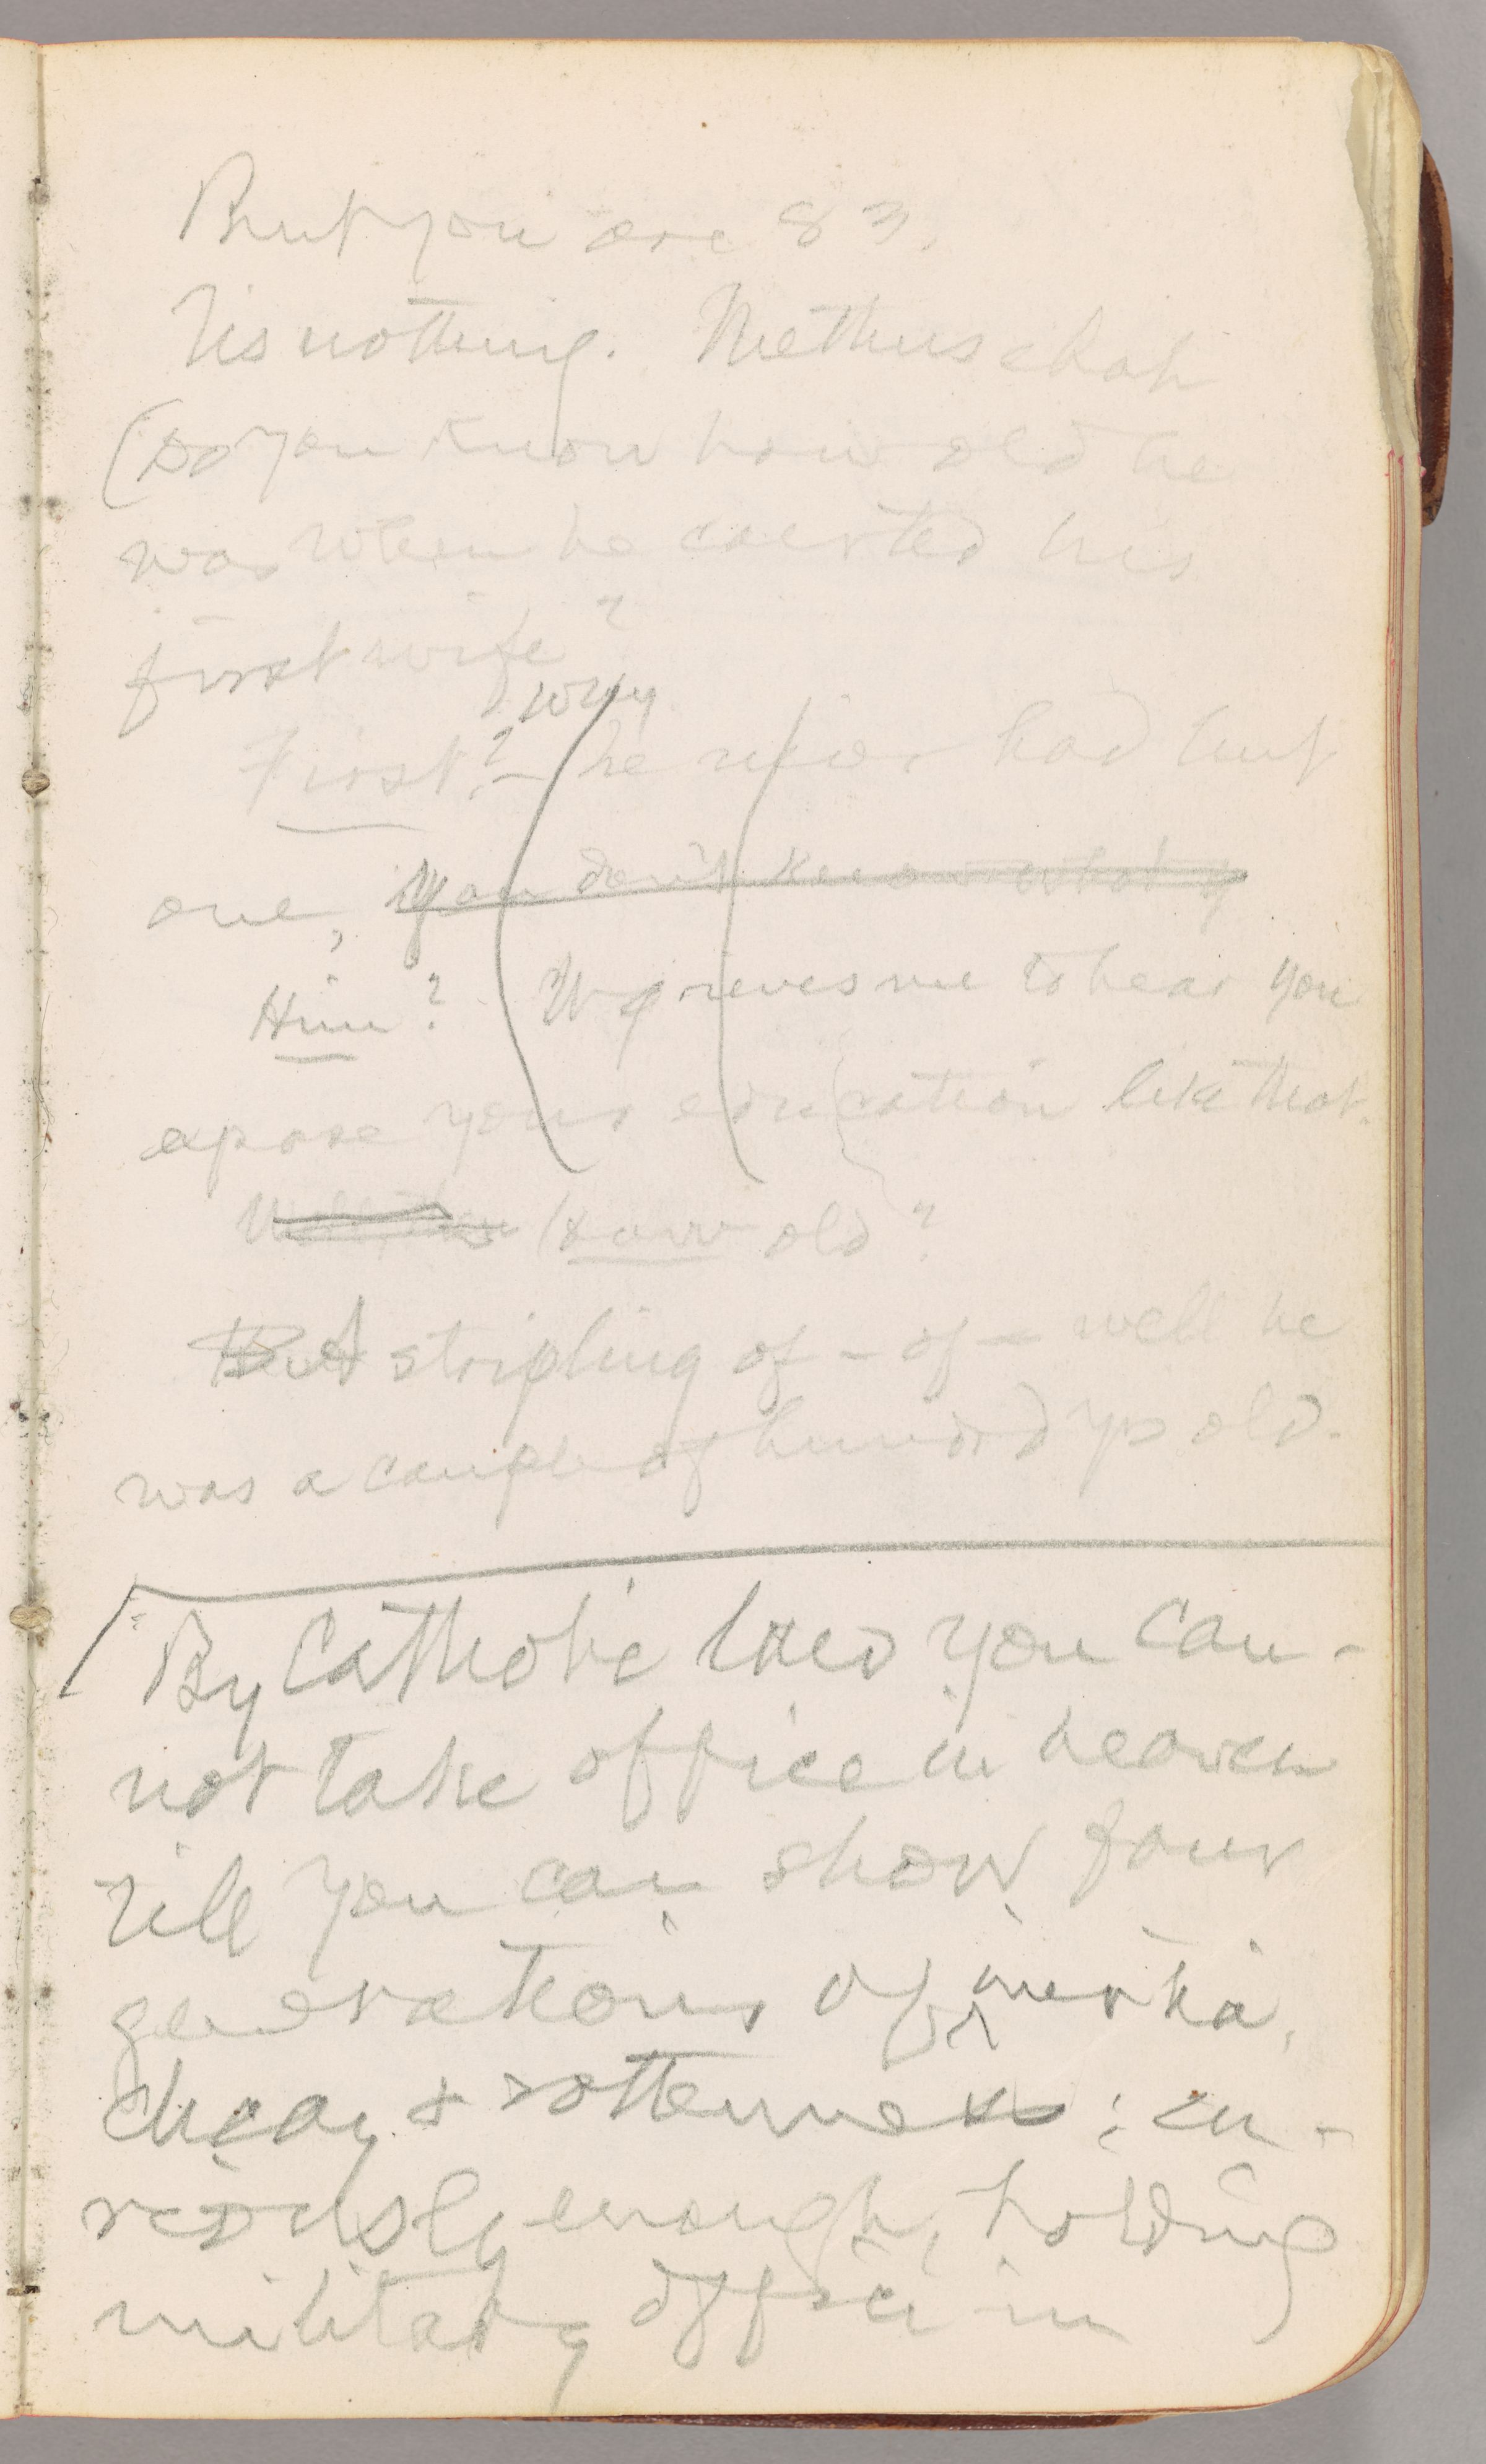 But you are 83.
'Tis nothing. Methuselah
(Do you know how old he
was when he courted his
first wife?
why
First? — he never had but
one, You don't know what y
Him? It grieves me to hear you
expose your education like that.
Well, how old?
But A stripling of — of — well he
was a couple of hundred yrs old.
By Catholic law you can-
not take office in heaven
till you can show four
generations of inertia,
decay & rottenness; cu-
riously enough, holding
military office in